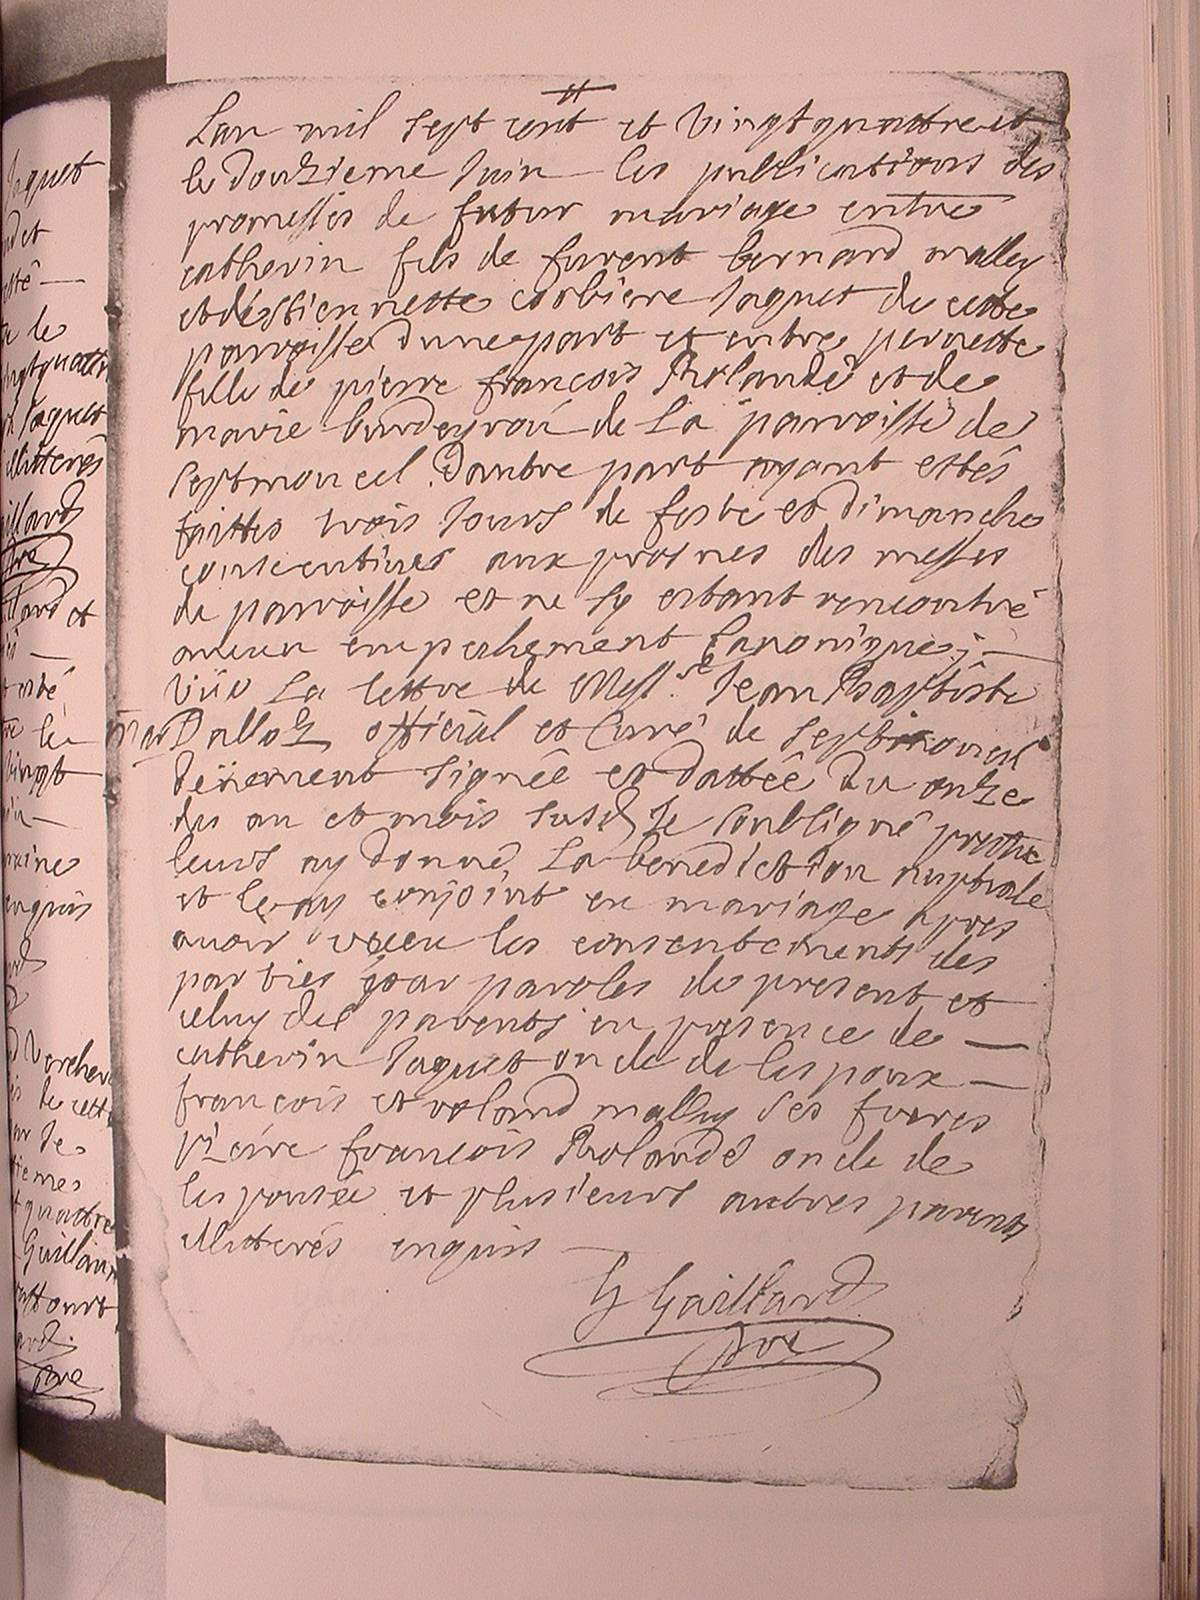 Lan mil sept cent et vingtquattre et
le douzieme Juin les publications des
promesses de futur mariage entre
catherin fils de furent bernard malley
et destiennette corbiere Jaquet de cette
parroisse dune part et entre pernette
fille de pierre francois Rolandé et de
marie burdeyron de la parroisse de
septmoncel dautre part ayant estés
faittes trois Jours de feste et dimanche
consecutives aux prosnes des messes
de parroisse et ne sy estant rencontré
aucun empeshement Canonique;
Vüe La lettre de Mess.re Jean Baptiste
Dalloz official et Curé de septmoncel
deüement signée et dattée du onze
des an et mois susd. Je soubsigné prettre
leurs ay donné La benediction nuptiale
et les ay conjoint en mariage apres
avoir receu les consentements des
parties par paroles de present et
celuy des parents en presence de
catherin Jaquet oncle de lespoux
francois et roland malley ses freres
pierre francois Rolandé oncle de
lespousée et plusieurs autres parents
illitterés enquis
G Gaillard
ptre